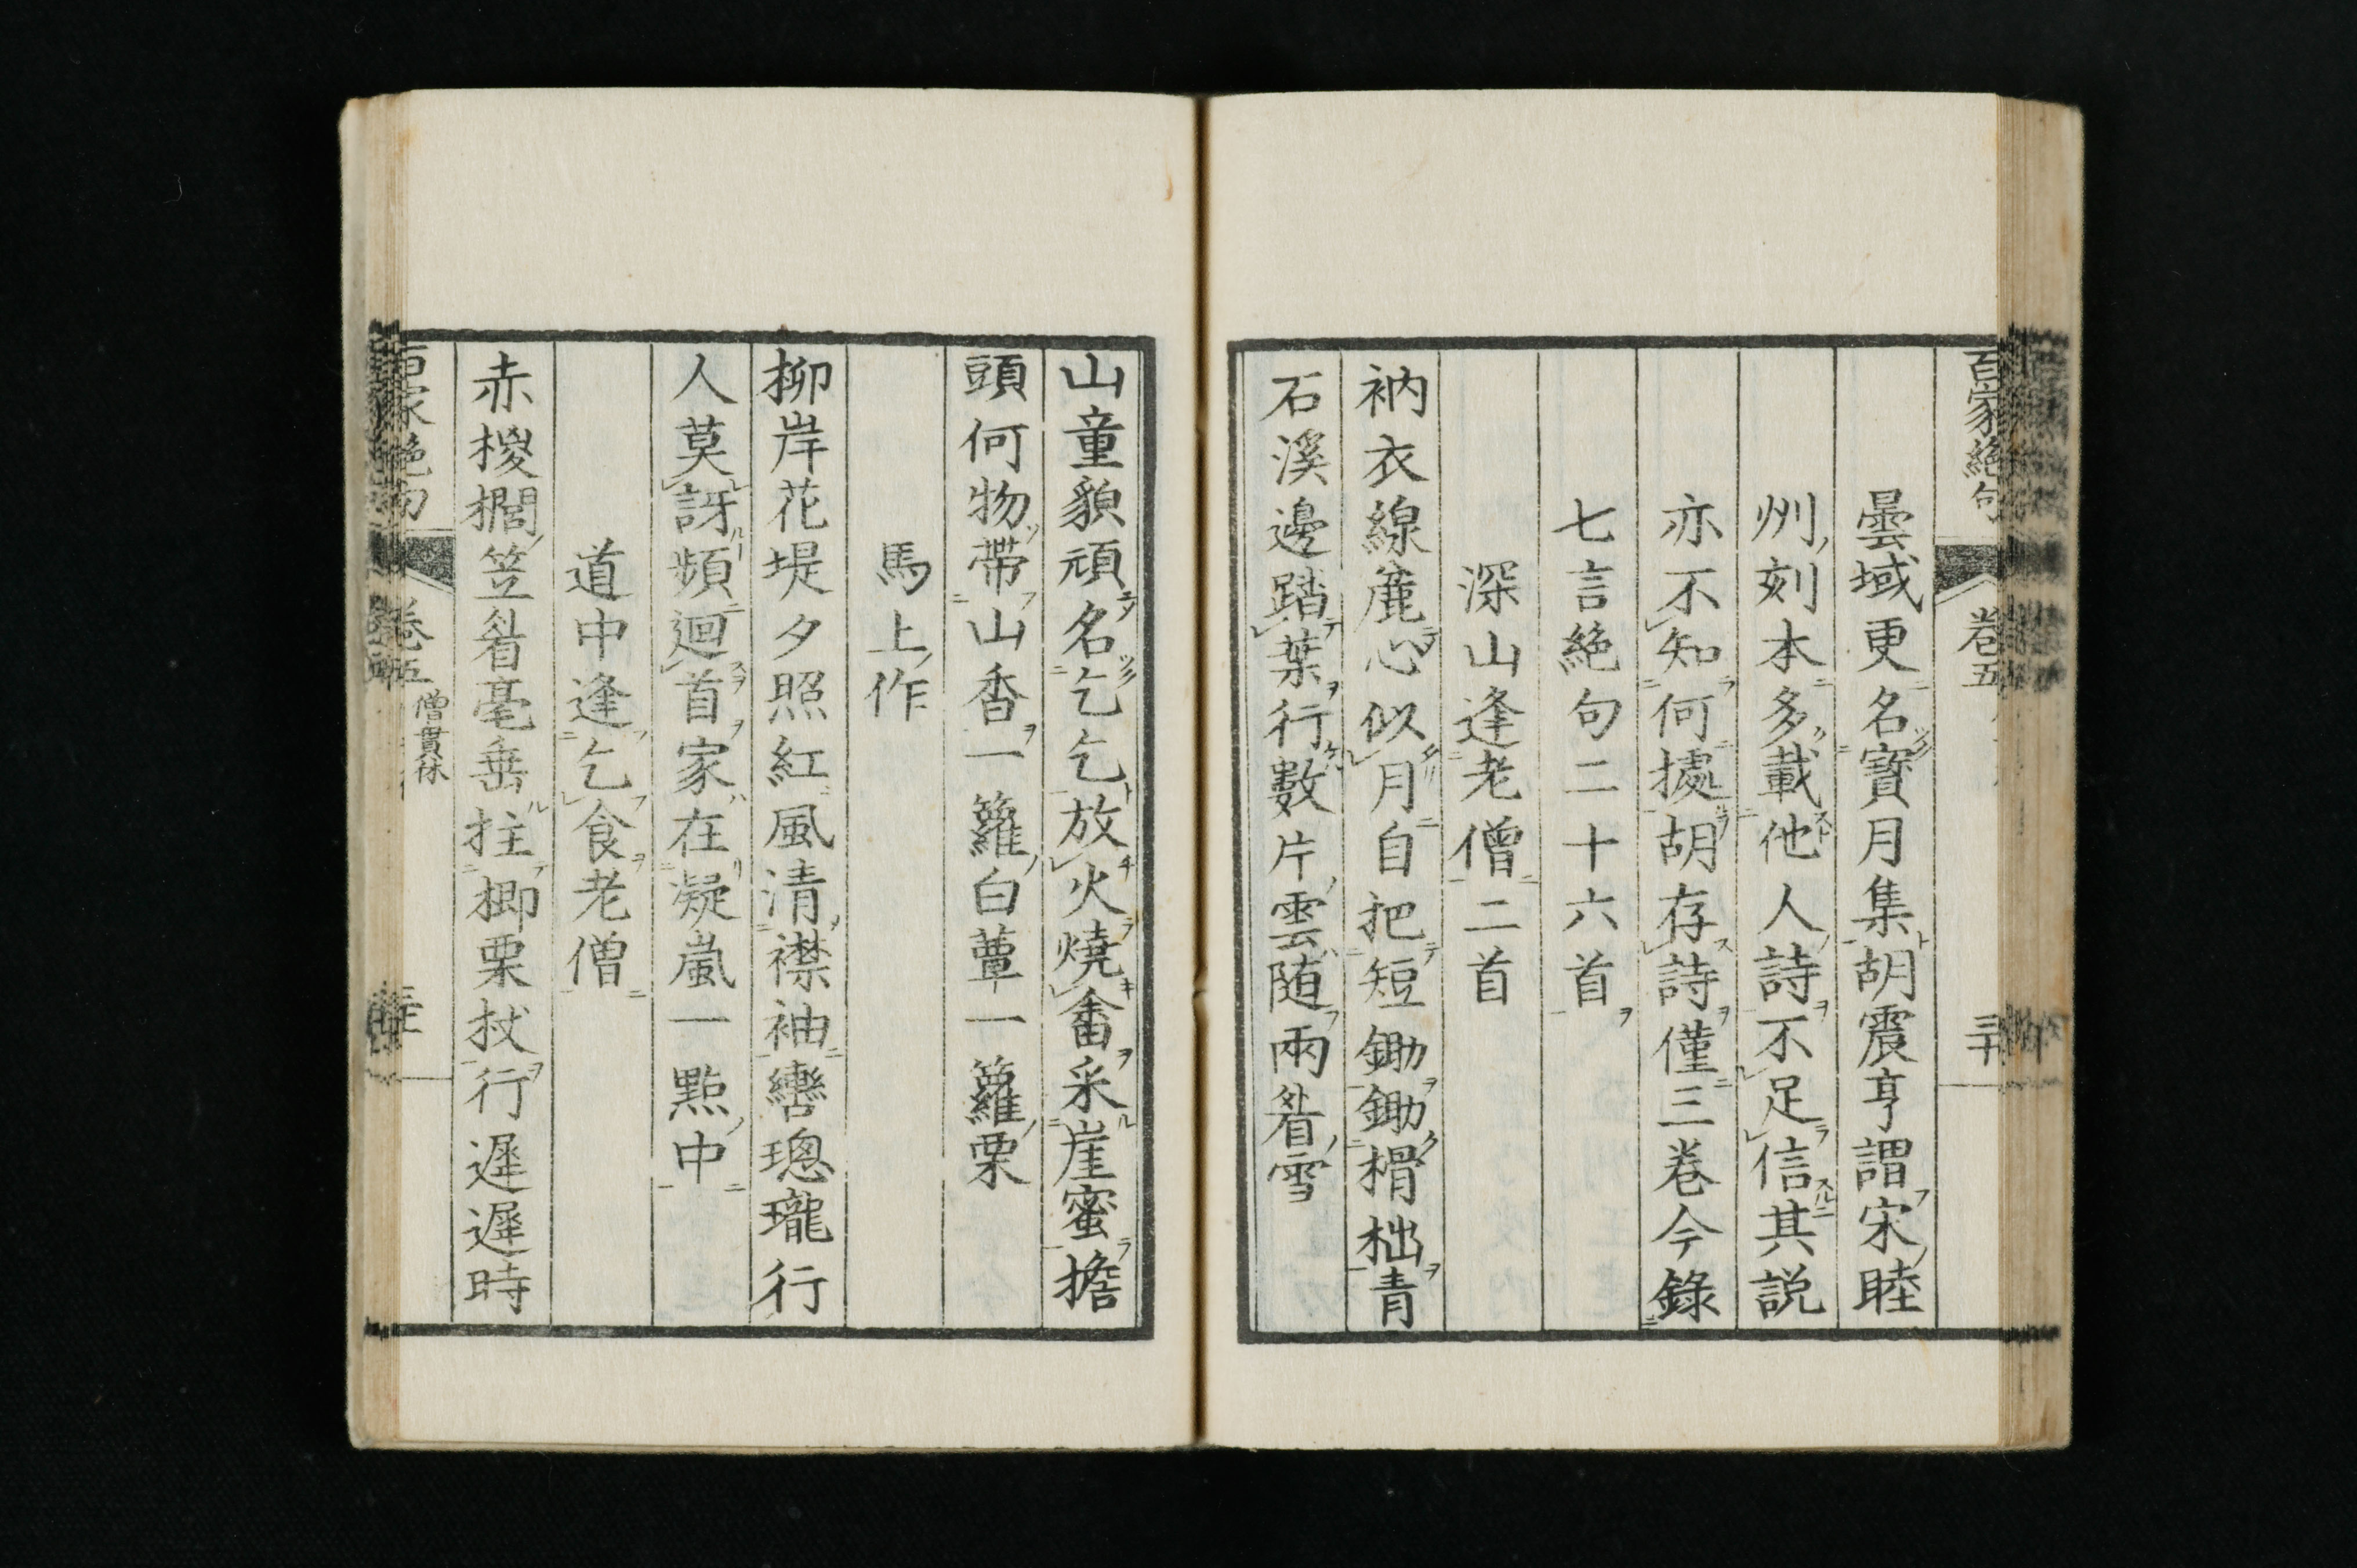 百家絶句 卷五 三十
曇域更名寶月集胡震亨謂宋睦
州刻本多載他人詩不足信其説
亦不知何據胡存詩僅三卷今錄
七言絶句二十六首
深山逢老僧二首
衲衣線麁心似月自把短鋤鋤榾柮青
石溪邊踏葉行數片雲随兩眉雪
山童貌頑名乞乞放火燒畬采崖蜜擔
頭何物帶山香一籮白蕈一籮栗
馬上作
柳岸花堤夕照紅風清襟袖轡璁瓏行
人莫訝頻迴首家在凝嵐一點中
道中逢乞食老僧
赤椶櫚笠眉毫垂拄楖栗杖行遲遲時
百家絶句 卷五 僧貫休